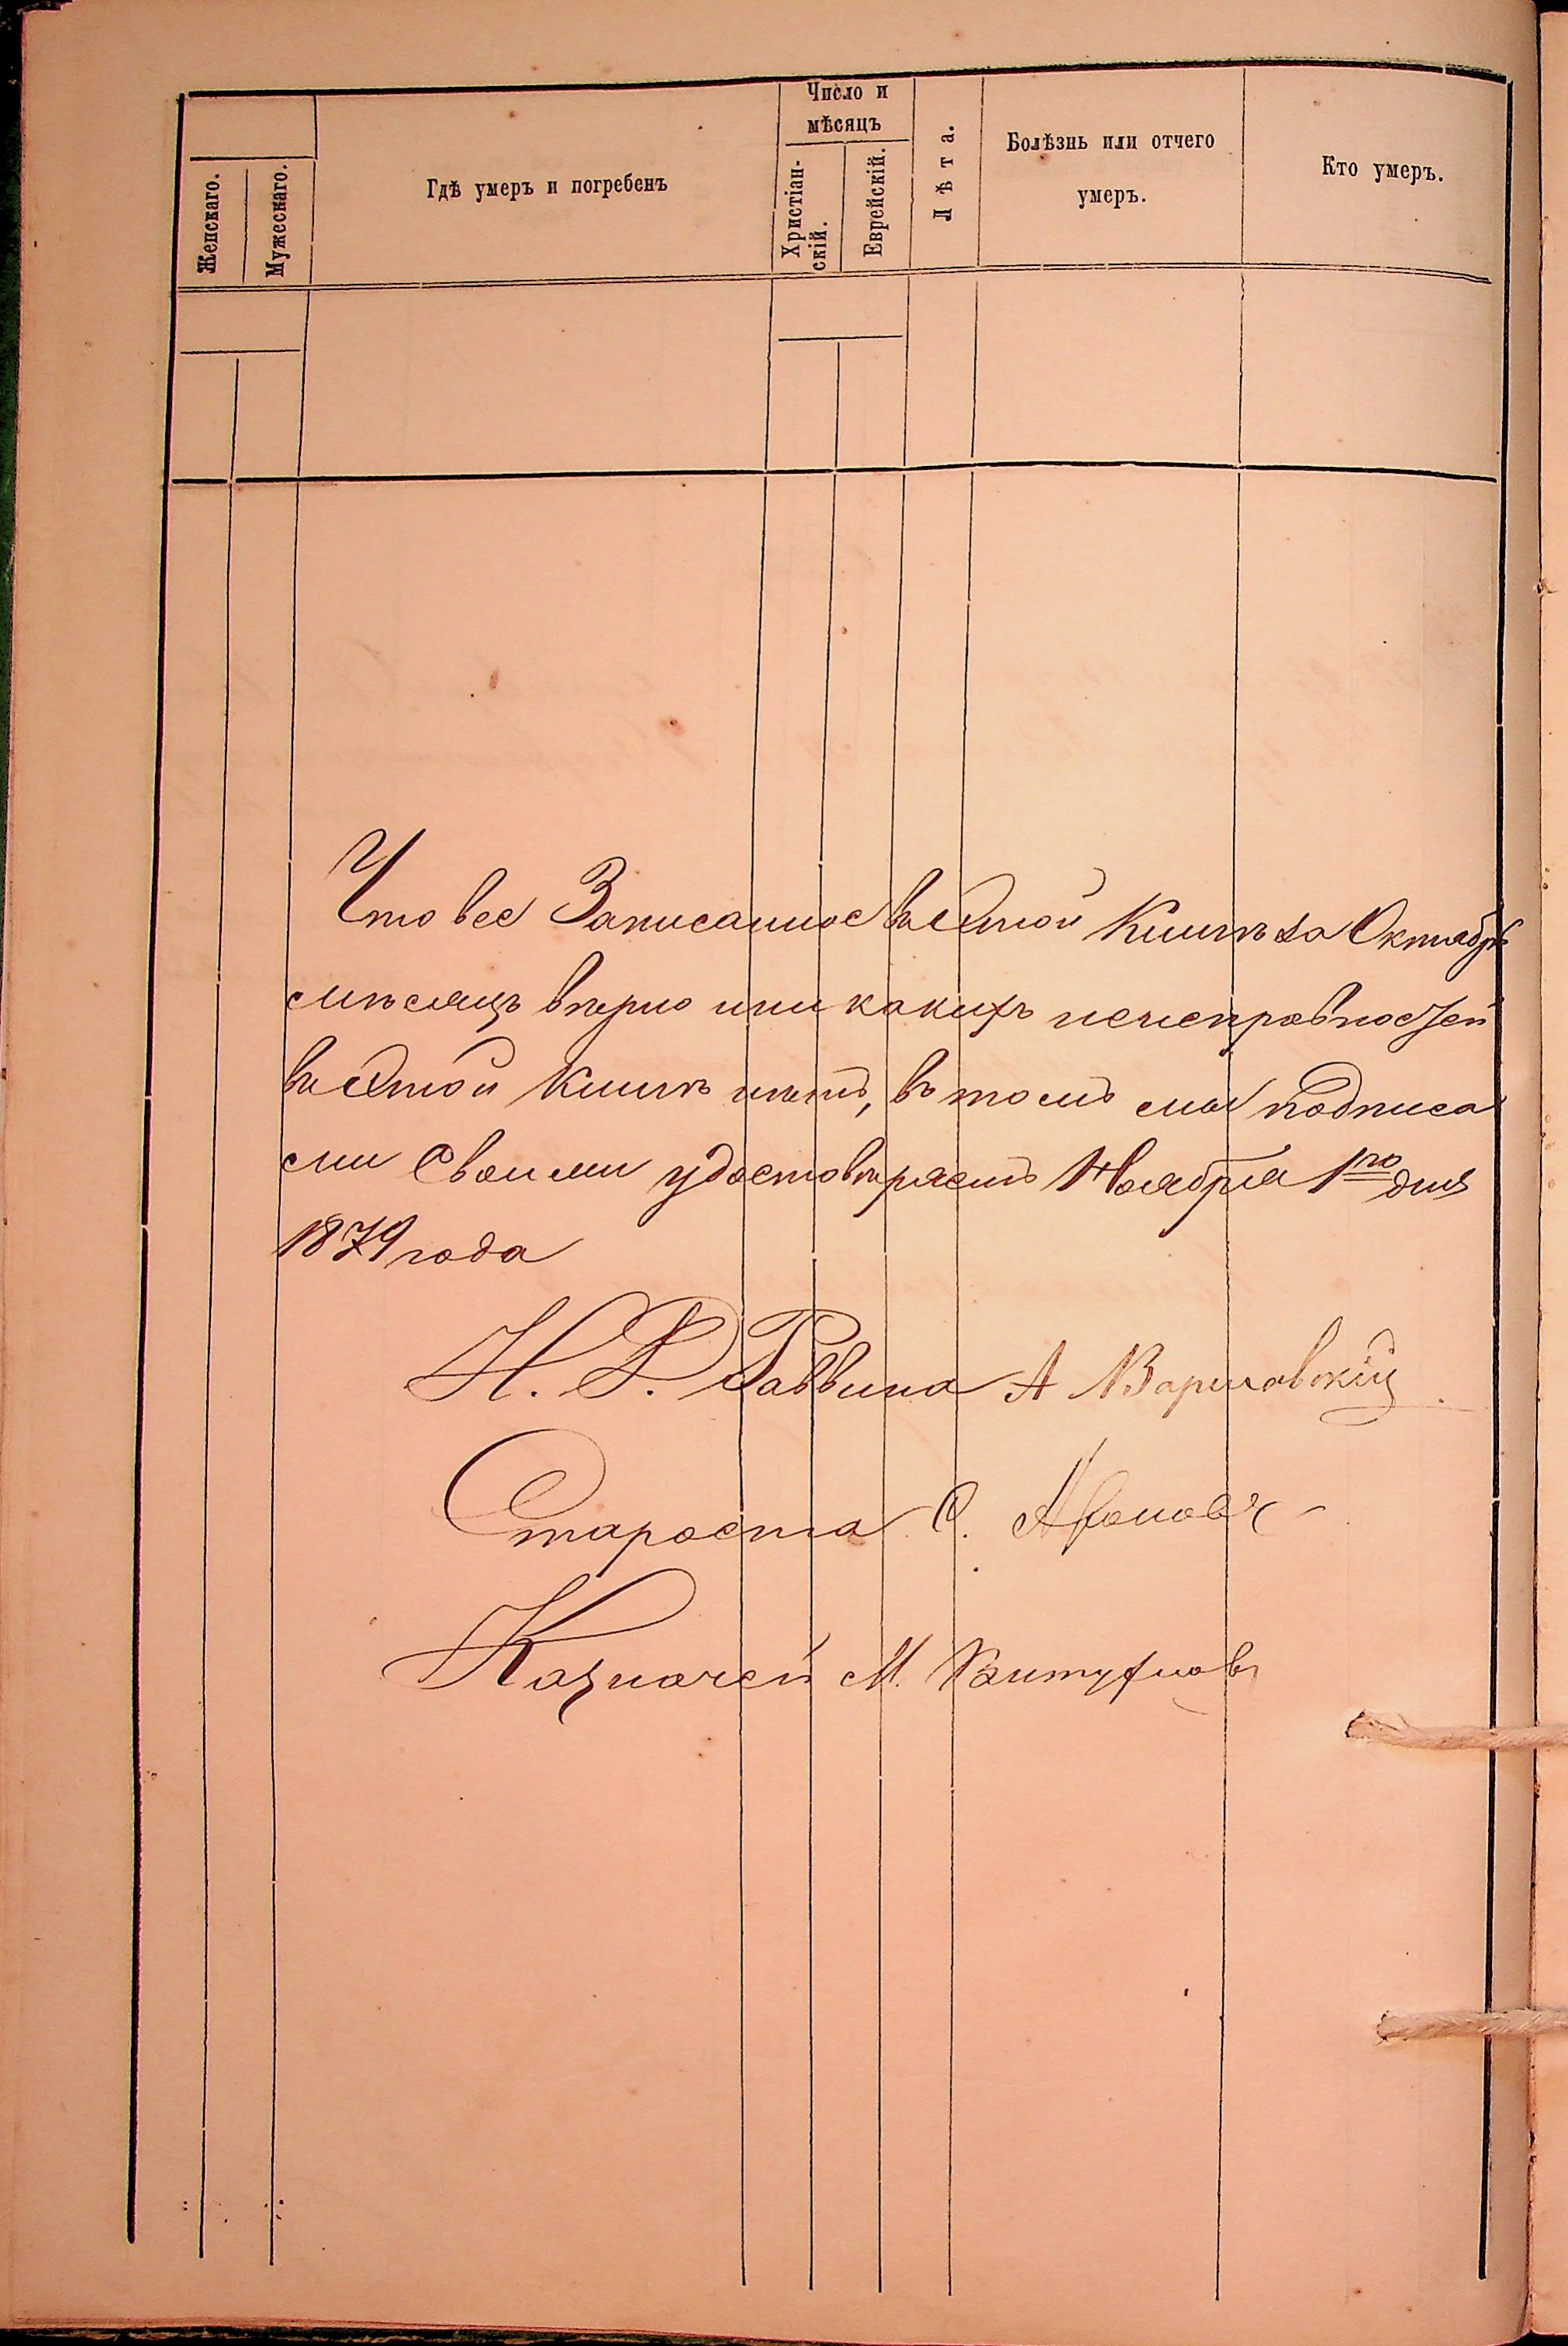 Число и
мѣсяцъ
Женскаго.
Мужескаго.
Гдѣ умеръ и погребенъ
Христіан-
скій.
Еврейскій.
Лѣта.
Болѣзнь или отчего
умеръ.
Кто умеръ.
Что все Записанное въ Этой Книгѣ за Октябрь
мѣсяцъ вѣрно и ни какихъ неисправностей
въ Этой Книгѣ нѣтъ, въ томъ мы подписа
ми Своими удостовѣряемъ Ноября 1го дня
1879 года
И. Д. Раввина А Варшавскій
Староста С.
Казначей М.